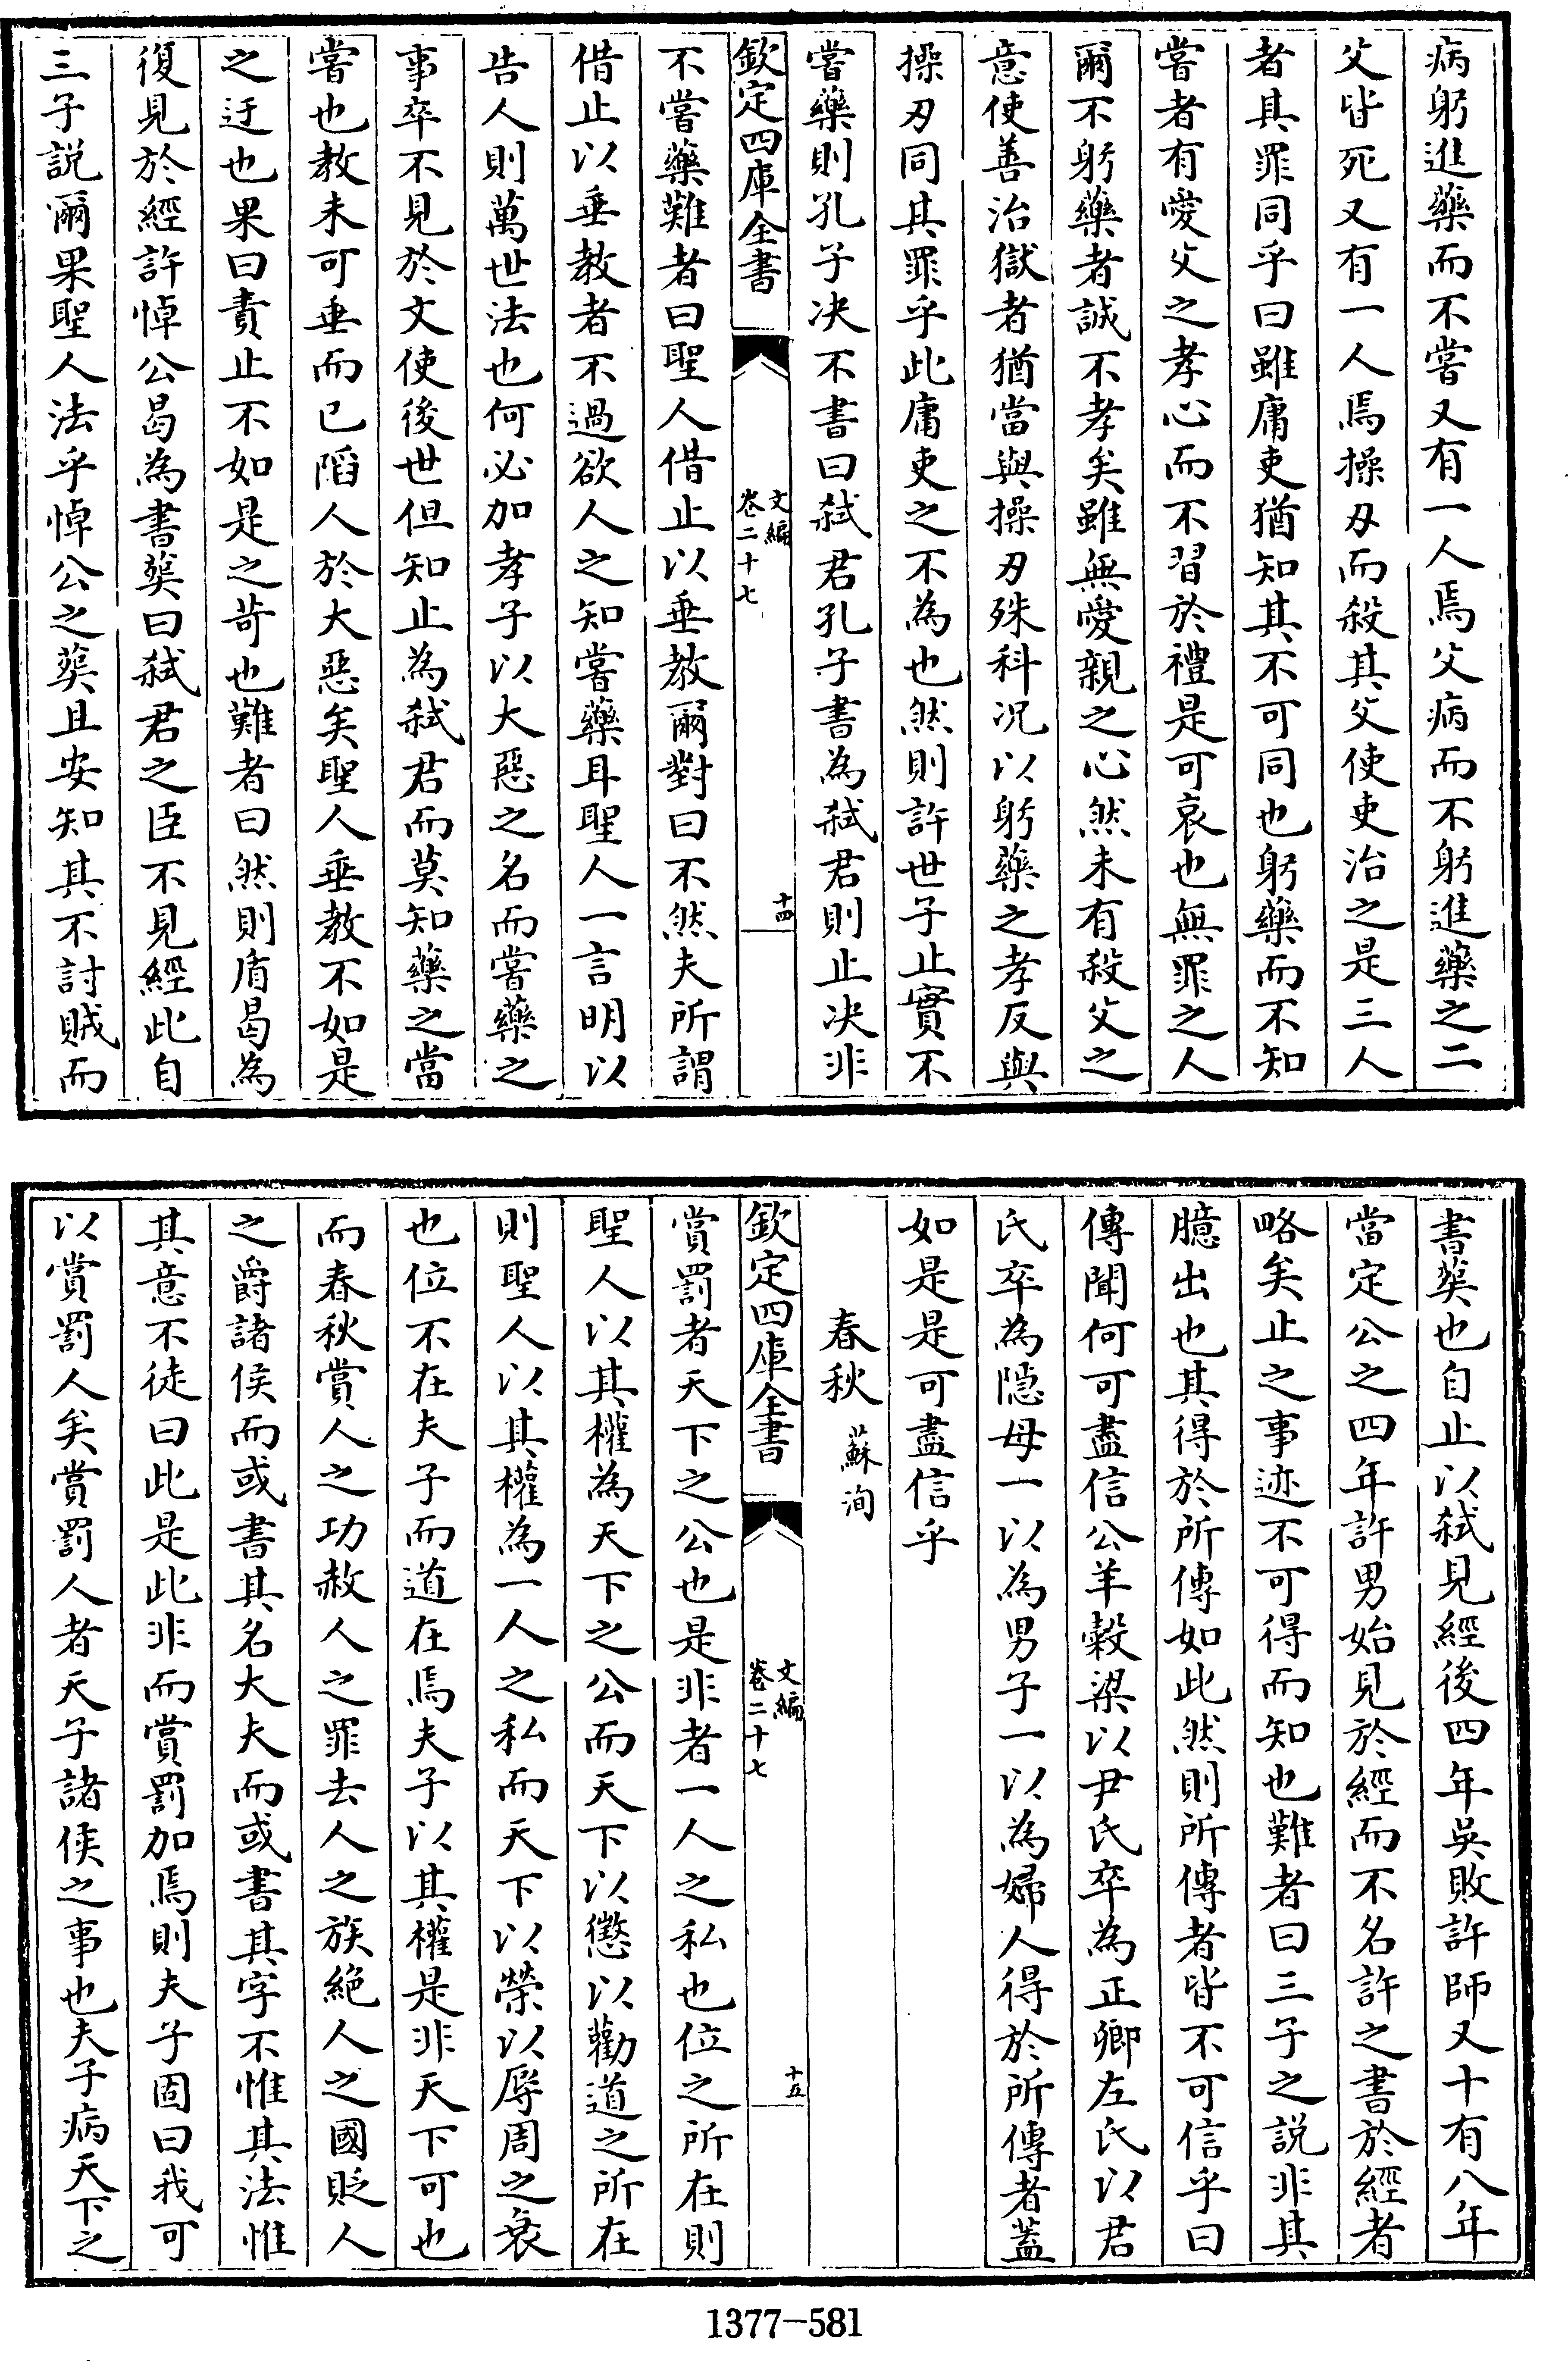 病躬進藥而不嘗又有一人焉父病而不躬進藥之二
父皆死又有一人焉操刃而殺其父使吏治之是三人
者其罪同乎曰雖庸吏猶知其不可同也躬藥而不知
嘗者有愛父之孝心而不習於禮是可哀也無罪之人
爾不躬藥者誠不孝矣雖無愛親之心然未有殺父之
意使善治獄者猶當與操刃殊科况以躬藥之孝反與
操刃同其罪乎此庸吏之不為也然則許世子止實不
嘗藥則孔子决不書曰弑君孔子書為弑君則止决非
欽定四庫全書
文編
卷二十七
十四
不嘗藥難者曰聖人借止以垂教爾對曰不然夫所謂
借止以垂教者不過欲人之知嘗藥耳聖人一言明以
告人則萬世法也何必加孝子以大惡之名而嘗藥之
事卒不見於文使後世但知止為弑君而莫知藥之當
嘗也教未可垂而已陷人於大惡矣聖人垂教不如是
之迂也果曰責止不如是之苛也難者曰然則盾曷為
復見於經許悼公曷為書葬曰弑君之臣不見經此自
三子説爾果聖人法乎悼公之葬且安知其不討賊而
書葬也自止以弑見經後四年吳敗許師又十有八年
當定公之四年許男始見於經而不名許之書於經者
略矣止之事迹不可得而知也難者曰三子之説非其
臆出也其得於所傳如此然則所傳者皆不可信乎曰
傳聞何可盡信公羊穀梁以尹氏卒為正卿左氏以君
氏卒為隱母一以為男子一以為婦人得於所傳者蓋
如是是可盡信乎
春秋 蘇洵
欽定四庫全書
文編
卷二十七
十五
賞罰者天下之公也是非者一人之私也位之所在則
聖人以其權為天下之公而天下以懲以勸道之所在
則聖人以其權為一人之私而天下以榮以辱周之衰
也位不在夫子而道在焉夫子以其權是非天下可也
而春秋賞人之功赦人之罪去人之族絶人之國貶人
之爵諸侯而或書其名大夫而或書其字不惟其法惟
其意不徒曰此是此非而賞罰加焉則夫子固曰我可
以賞罰人矣賞罰人者天子諸侯之事也夫子病天下之
1377-581